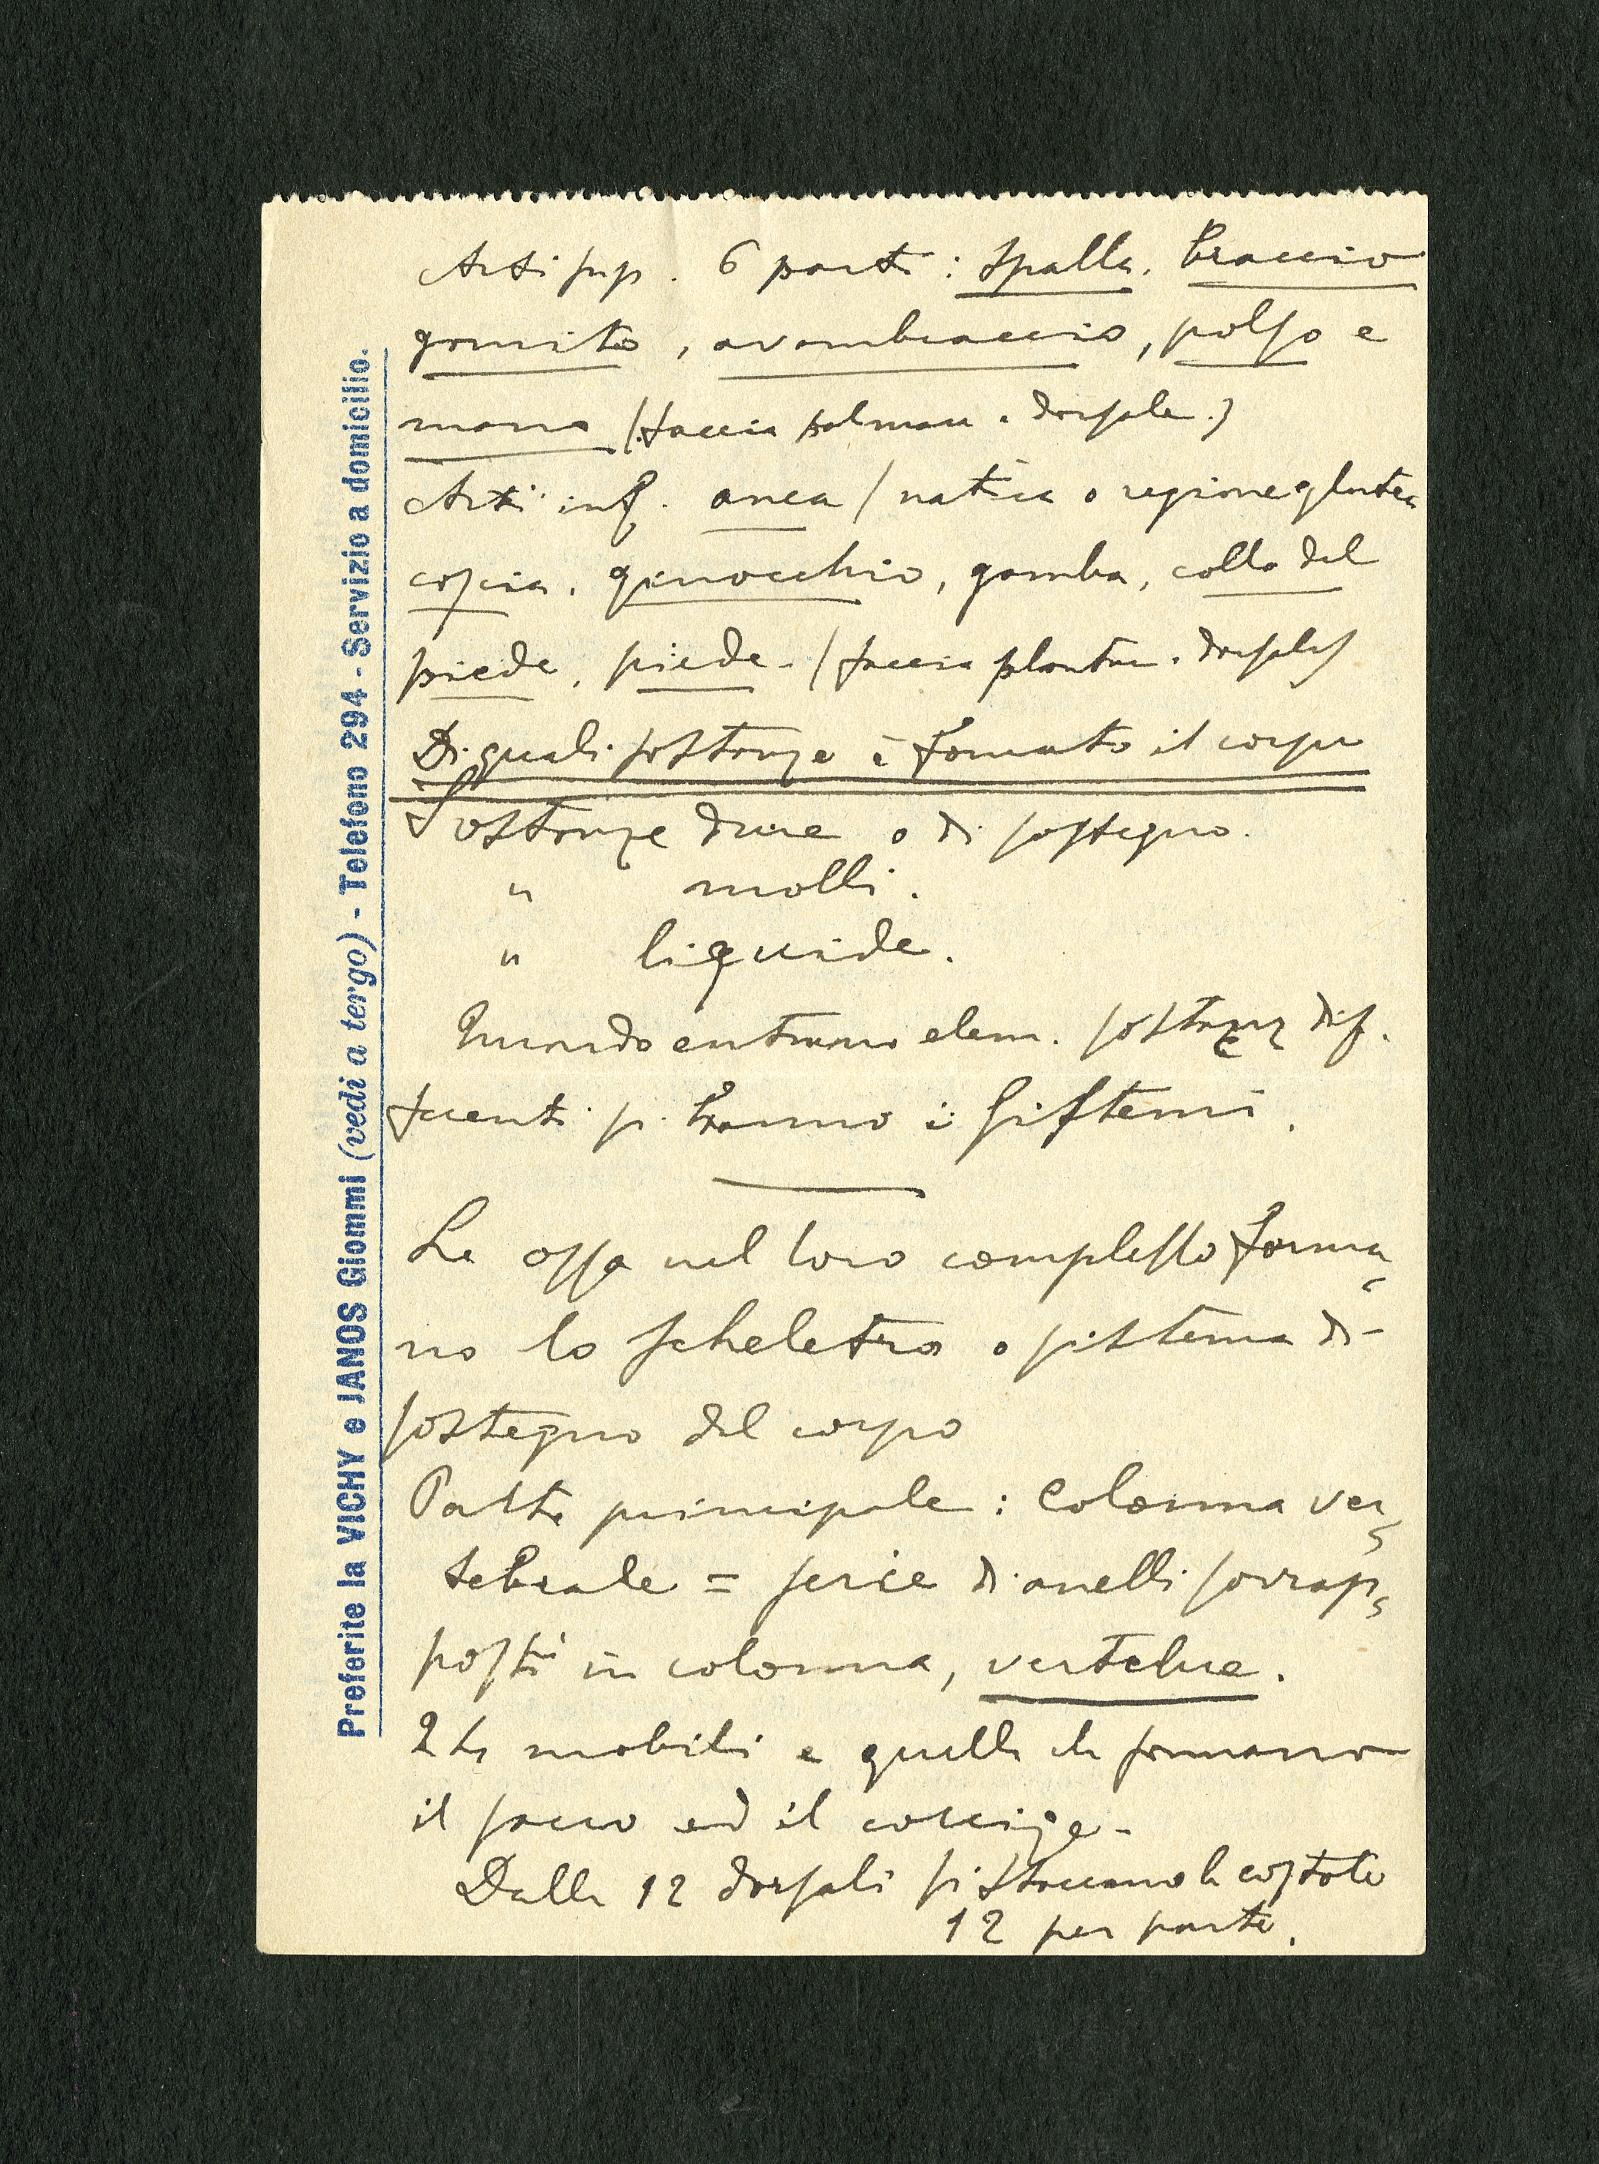 Arti sup. 6 parti: spalla, braccio
gomito, avambraccio, polso e
mano (faccia palmare e dorsale.)
Arti inf. anca / natica o regione glutea
coscia, ginocchio, gamba, collo del
piede, piede. (faccia plantare e dorsale)
Di quali sostanze è formato il corpo
Sostanze dure o di sostegno.
" molli.
" liquide.
Quando entrano elem. sostanze dif.
ferenti si hanno i Sistemi.
Le ossa nel loro complesso forma
no lo scheletro o sistema di
sostegno del corpo
Parte principale: Colonna ver
tebrale = serie di anelli sovrap
posti in colonna, vertebre.
24 mobili e quelle che formano
il sacro ed il coccige.
Dalle 12 dorsali si staccano le costole
12 per parte.
Preferite la VICHY e JANOS Giommi (vedi a tergo) - Telefono 294 - Servizio a domicilio.